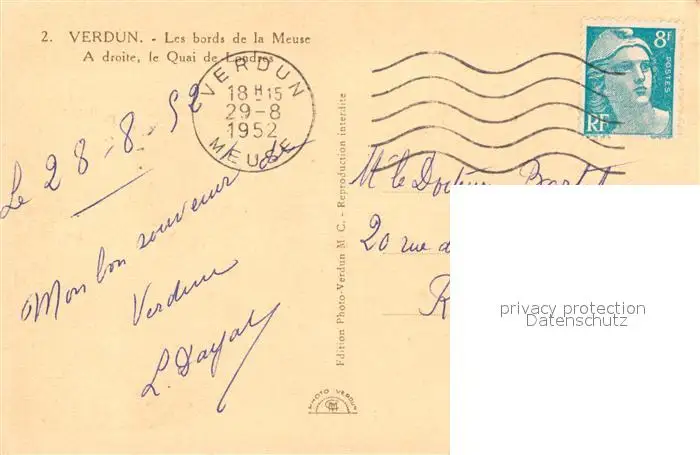 2. VERDUN. - Les bords de la Meuse
A droite, le Quai de Londres
VERDUN
18H15
29-8
1952
MEUSE
8F
POSTES
RF
Le 28-8-52
Mon bon souvenir de
Verdun
Edition Photo-Verdun M C. - Reproduction interdite
PHOTO VERDUN
Mr le Docteur
20 rue d
R
privacy protection
Datenschutz